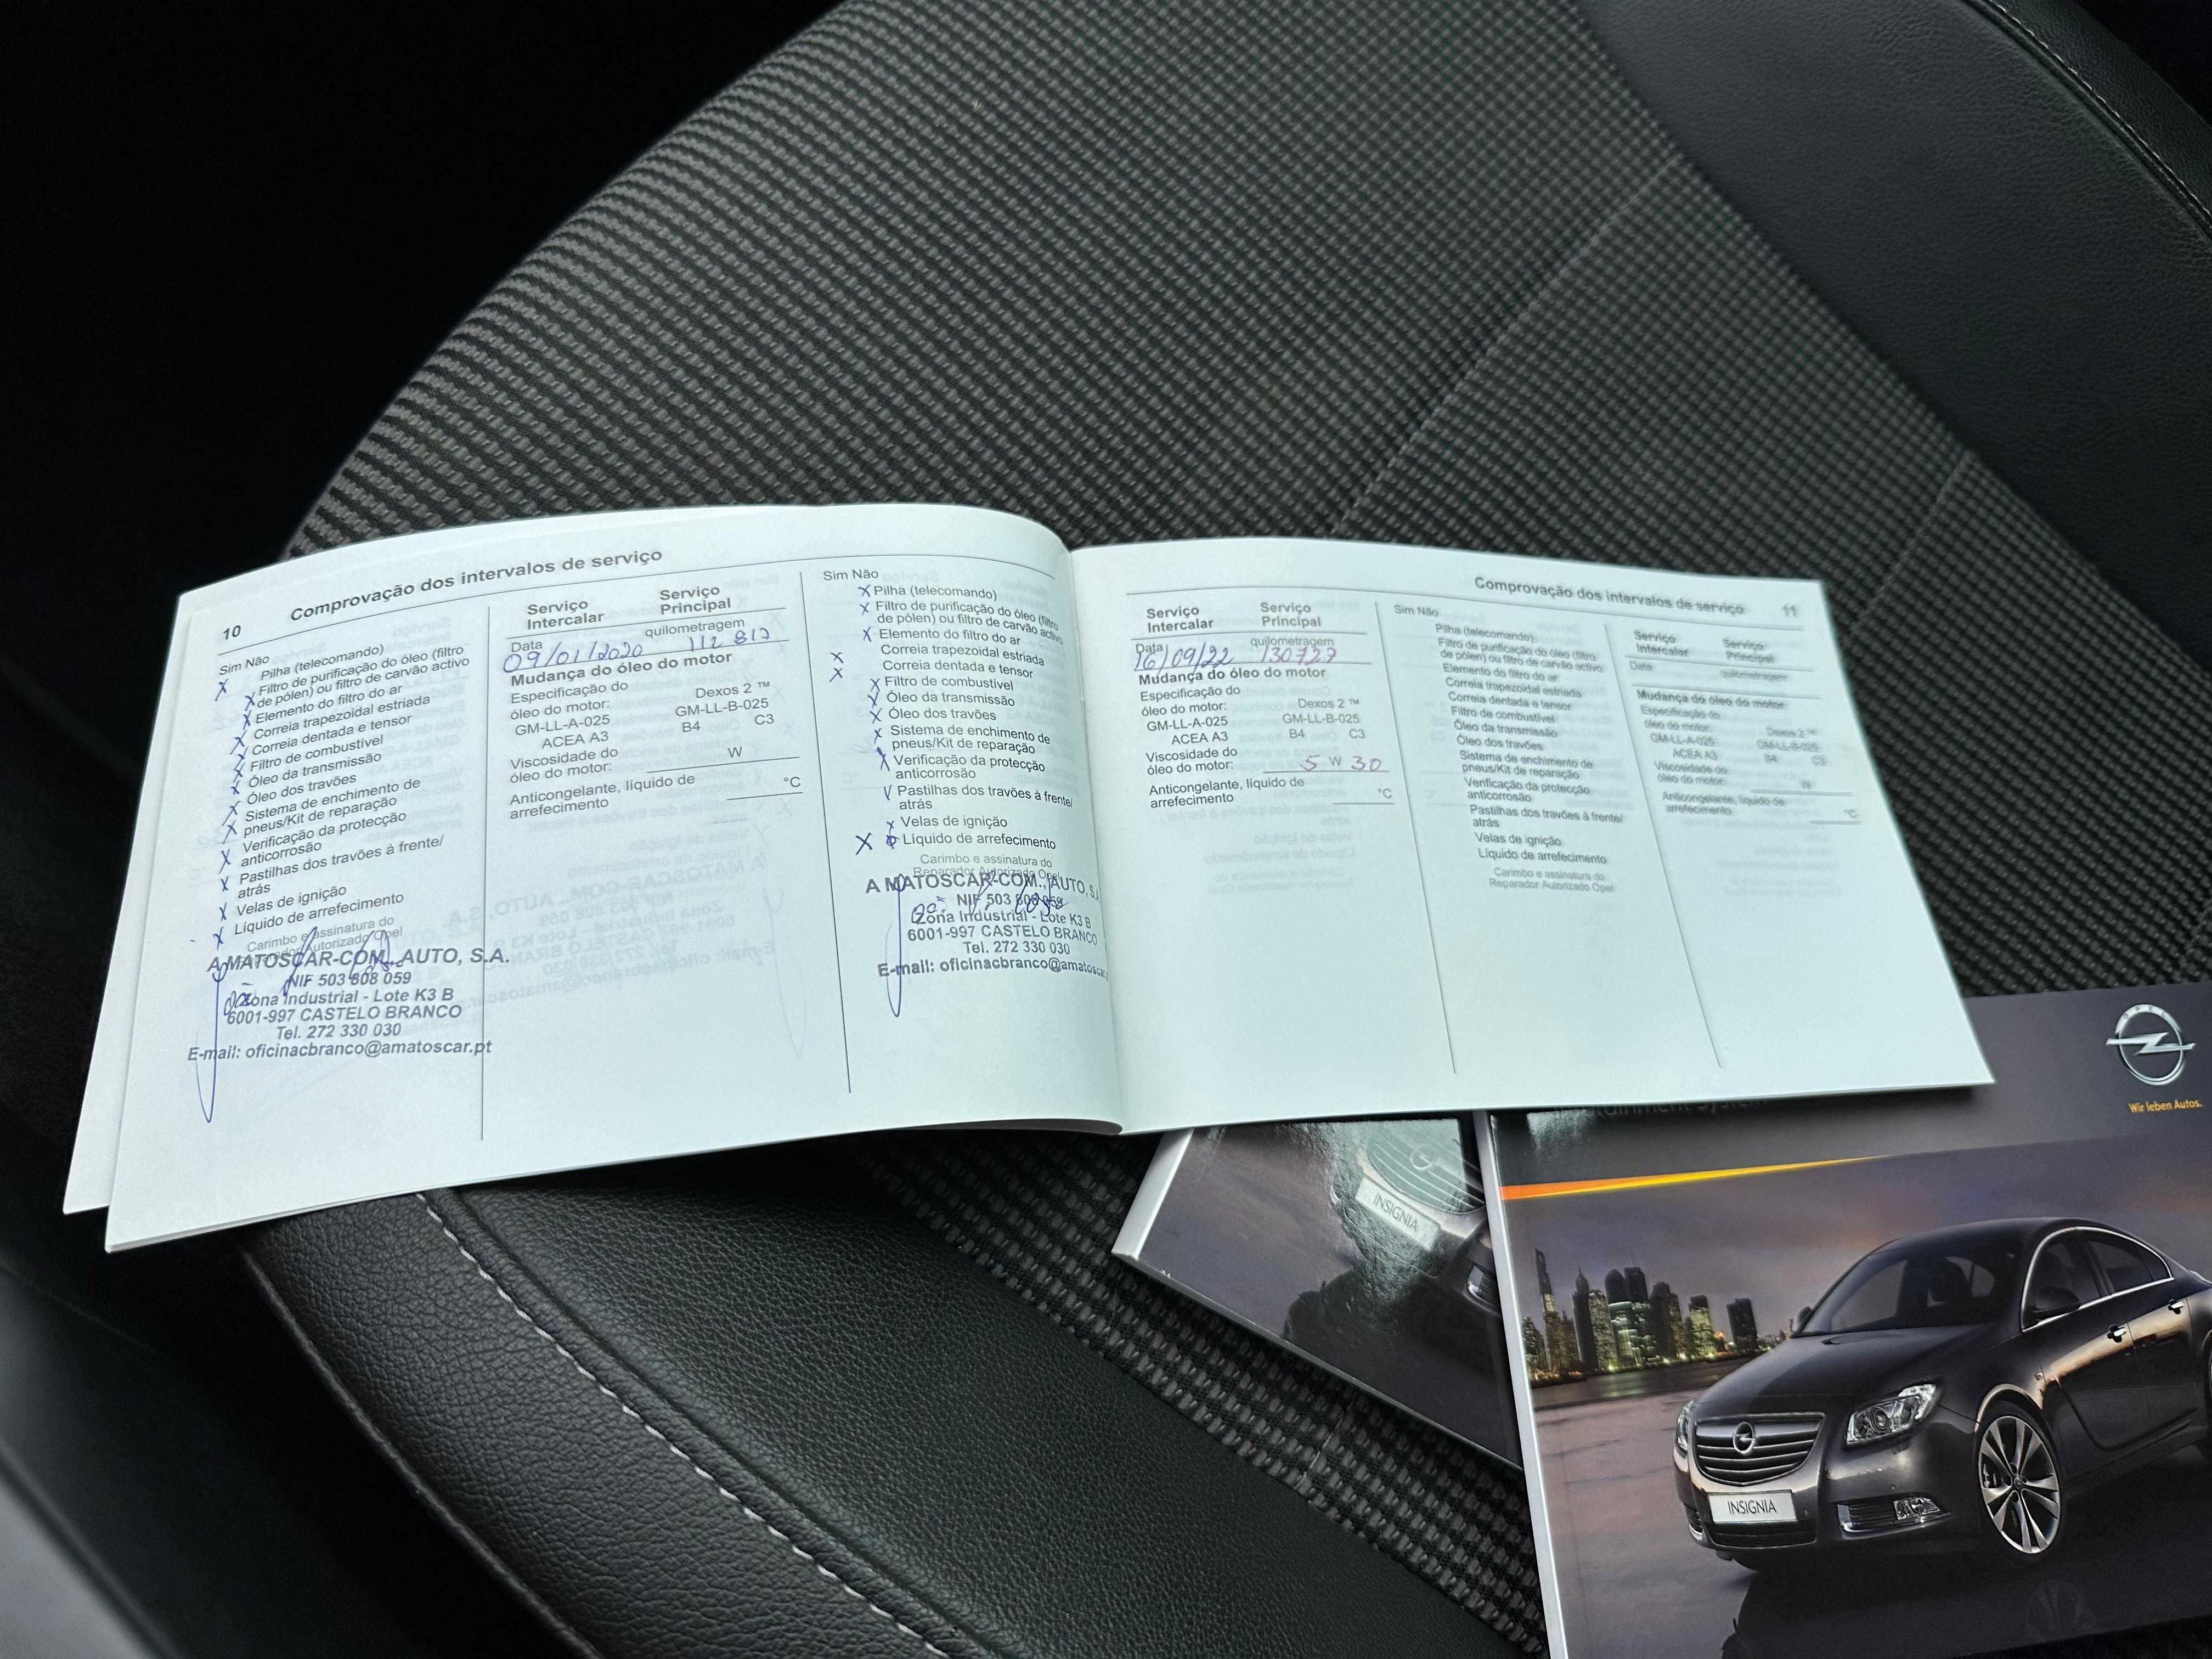 10
Comprovação dos intervalos de serviço
Sim Não
X Pilha (telecomando)
X Filtro de purificação do óleo (filtro
de pólen) ou filtro de carvão activo
X Elemento do filtro do ar
X Correia trapezoidal estriada
X Correia dentada e tensor
X Filtro de combustível
X Óleo da transmissão
X Óleo dos travões
X Sistema de enchimento de
pneus/Kit de reparação
X Verificação da protecção
anticorrosão
X Pastilhas dos travões à frente/
atrás
X Velas de ignição
X Líquido de arrefecimento
Carimbo e assinatura do
Reparador Autorizado Opel
A MATOSCAR-COM., AUTO, S.A.
NIF 503 808 059
Zona Industrial - Lote K3 B
6001-997 CASTELO BRANCO
Tel. 272 330 030
E-mail: oficinacbranco@amatoscar.pt
Serviço Serviço
Intercalar Principal
Data quilometragem
09/01/2020 112 817
Mudança do óleo do motor
Especificação do
óleo do motor: Dexos 2 ™
GM-LL-A-025 GM-LL-B-025
ACEA A3 B4 C3
Viscosidade do
óleo do motor: W
Anticongelante, líquido de
arrefecimento °C
Sim Não
X Pilha (telecomando)
X Filtro de purificação do óleo (filtro
de pólen) ou filtro de carvão activo
X Elemento do filtro do ar
X Correia trapezoidal estriada
X Correia dentada e tensor
X Filtro de combustível
X Óleo da transmissão
X Óleo dos travões
X Sistema de enchimento de
pneus/Kit de reparação
X Verificação da protecção
anticorrosão
X Pastilhas dos travões à frente/
atrás
X Velas de ignição
X Líquido de arrefecimento
Carimbo e assinatura do
Reparador Autorizado Opel
A MATOSCAR-COM., AUTO, S.A
NIF 503 808 059
Zona Industrial - Lote K3 B
6001-997 CASTELO BRANCO
Tel. 272 330 030
E-mail: oficinacbranco@amatoscar
Comprovação dos intervalos de serviço
11
Serviço Serviço
Intercalar Principal
Data quilometragem
16/09/22 130727
Mudança do óleo do motor
Especificação do
óleo do motor: Dexos 2 ™
GM-LL-A-025 GM-LL-B-025
ACEA A3 B4 C3
Viscosidade do
óleo do motor: 5 W 30
Anticongelante, líquido de
arrefecimento °C
Sim Não
Pilha (telecomando)
Filtro de purificação do óleo (filtro
de pólen) ou filtro de carvão activo
Elemento do filtro do ar
Correia trapezoidal estriada
Correia dentada e tensor
Filtro de combustível
Óleo da transmissão
Óleo dos travões
Sistema de enchimento de
pneus/Kit de reparação
Verificação da protecção
anticorrosão
Pastilhas dos travões à frente/
atrás
Velas de ignição
Líquido de arrefecimento
Carimbo e assinatura do
Reparador Autorizado Opel
Serviço Serviço
Intercalar Principal
Data
quilometragem
Mudança do óleo do motor
Especificação do
óleo do motor: Dexos 2 ™
GM-LL-A-025 GM-LL-B-025
ACEA A3 B4 C3
Viscosidade do
óleo do motor: W
Anticongelante, líquido de
arrefecimento °C
OPEL
Wir leben Autos.
INSIGNIA
INSIGNIA